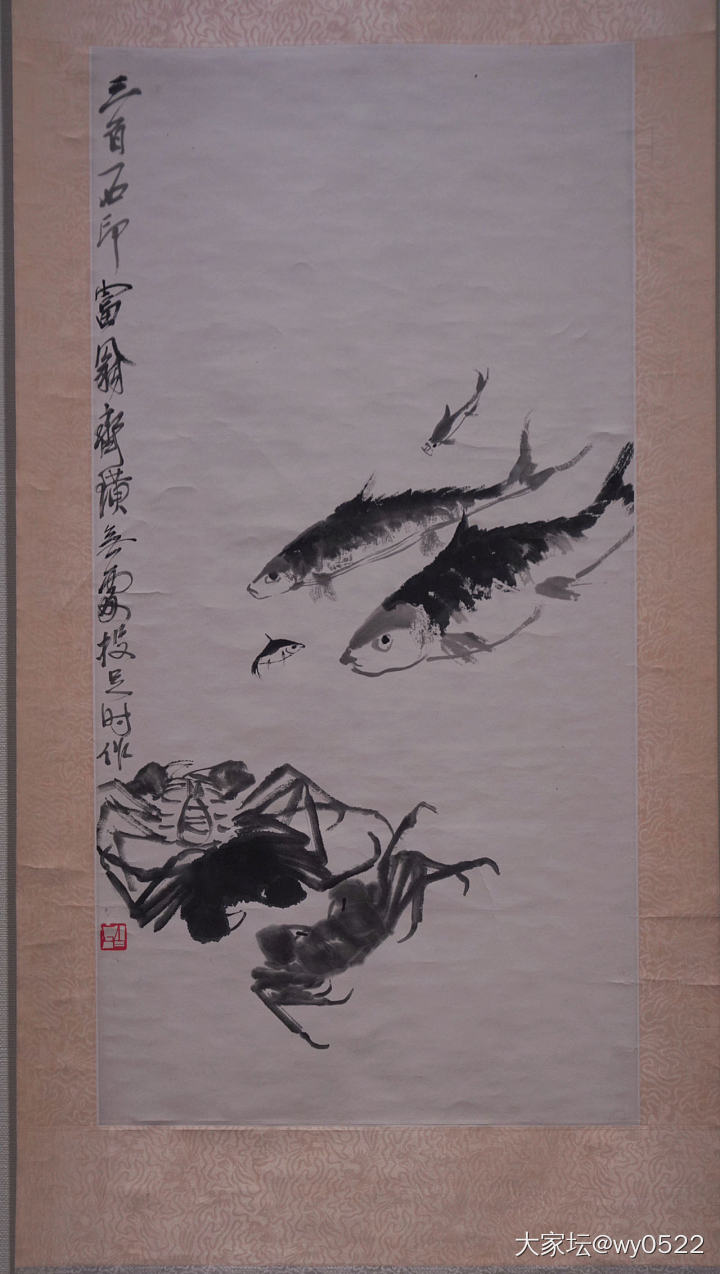 三百石印富翁齊璜無處投足时作
大家坛@wy0522